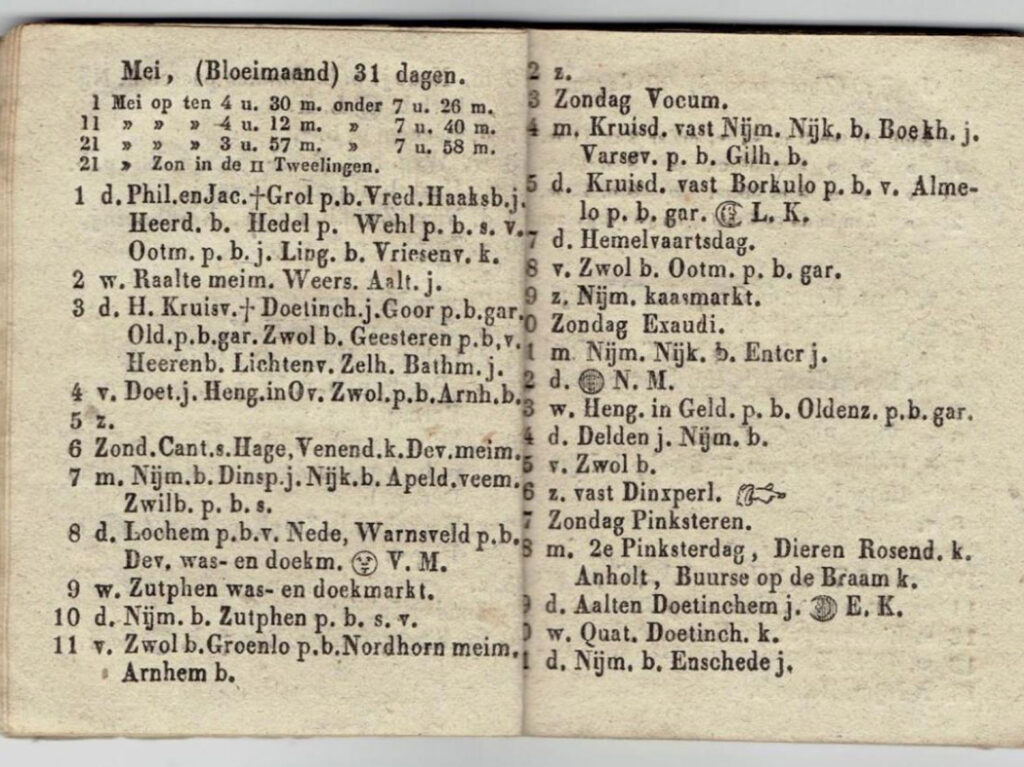 Mei, (Bloeimaand) 31 dagen.
1 Mei op ten 4 u. 30 m. onder 7 u. 26 m.
11 » » » 4 u. 12 m. » 7 u. 40 m.
21 » » » 3 u. 57 m. » 7 u. 58 m.
21 » Zon in de II Tweelingen.
1 d. Phil. en Jac. † Grol p. b. Vred. Haaksb. j.
Heerd. b. Hedel p. Wehl p. b. s. v.
Ootm. p. b. j. Ling. b. Vriesenv. k.
2 w. Raalte meim. Weers. Aalt. j.
3 d. H. Kruisv. † Doetinch. j. Goor p. b. gar.
Old. p. b. gar. Zwol b. Geesteren p. b, v.
Heerenb. Lichtenv. Zelh. Bathm. j.
4 v. Doet. j. Heng. in Ov. Zwol. p. b. Arnh. b.
5 z.
6 Zond. Cant. s. Hage, Venend. k. Dev. meim.
7 m. Nijm. b. Dinsp. j. Nijk. b. Apeld. veem.
Zwilb. p. b. s.
8 d. Lochem p. b. v. Nede, Warnsveld p. b.
Dev. was- en doekm. V. M.
9 w. Zutphen was- en doekmarkt.
10 d. Nijm. b. Zutphen p. b. s. v.
11 v. Zwol b. Groenlo p. b. Nordhorn meim.
Arnhem b.
2 z.
3 Zondag Vocum.
4 m. Kruisd. vast Nijm. Nijk. b. Boekh. j.
Varsev. p. b. Gilh. b.
5 d. Kruisd. vast Borkulo p. b. v. Alme-
lo p. b. gar. L. K.
7 d. Hemelvaartsdag.
8 v. Zwol b. Ootm. p. b. gar.
9 z. Nijm. kaasmarkt.
0 Zondag Exaudi.
1 m. Nijm. Nijk. b. Enter j.
2 d. N. M.
3 w. Heng. in Geld. p. b. Oldenz. p. b. gar.
4 d. Delden j. Nijm. b.
5 v. Zwol b.
6 z. vast Dinxperl.
7 Zondag Pinksteren.
8 m. 2e Pinksterdag, Dieren Rosend. k.
Anholt, Buurse op de Braam k.
9 d. Aalten Doetinchem j. E. K.
0 w. Quat. Doetinch. k.
1 d. Nijm. b. Enschede j.